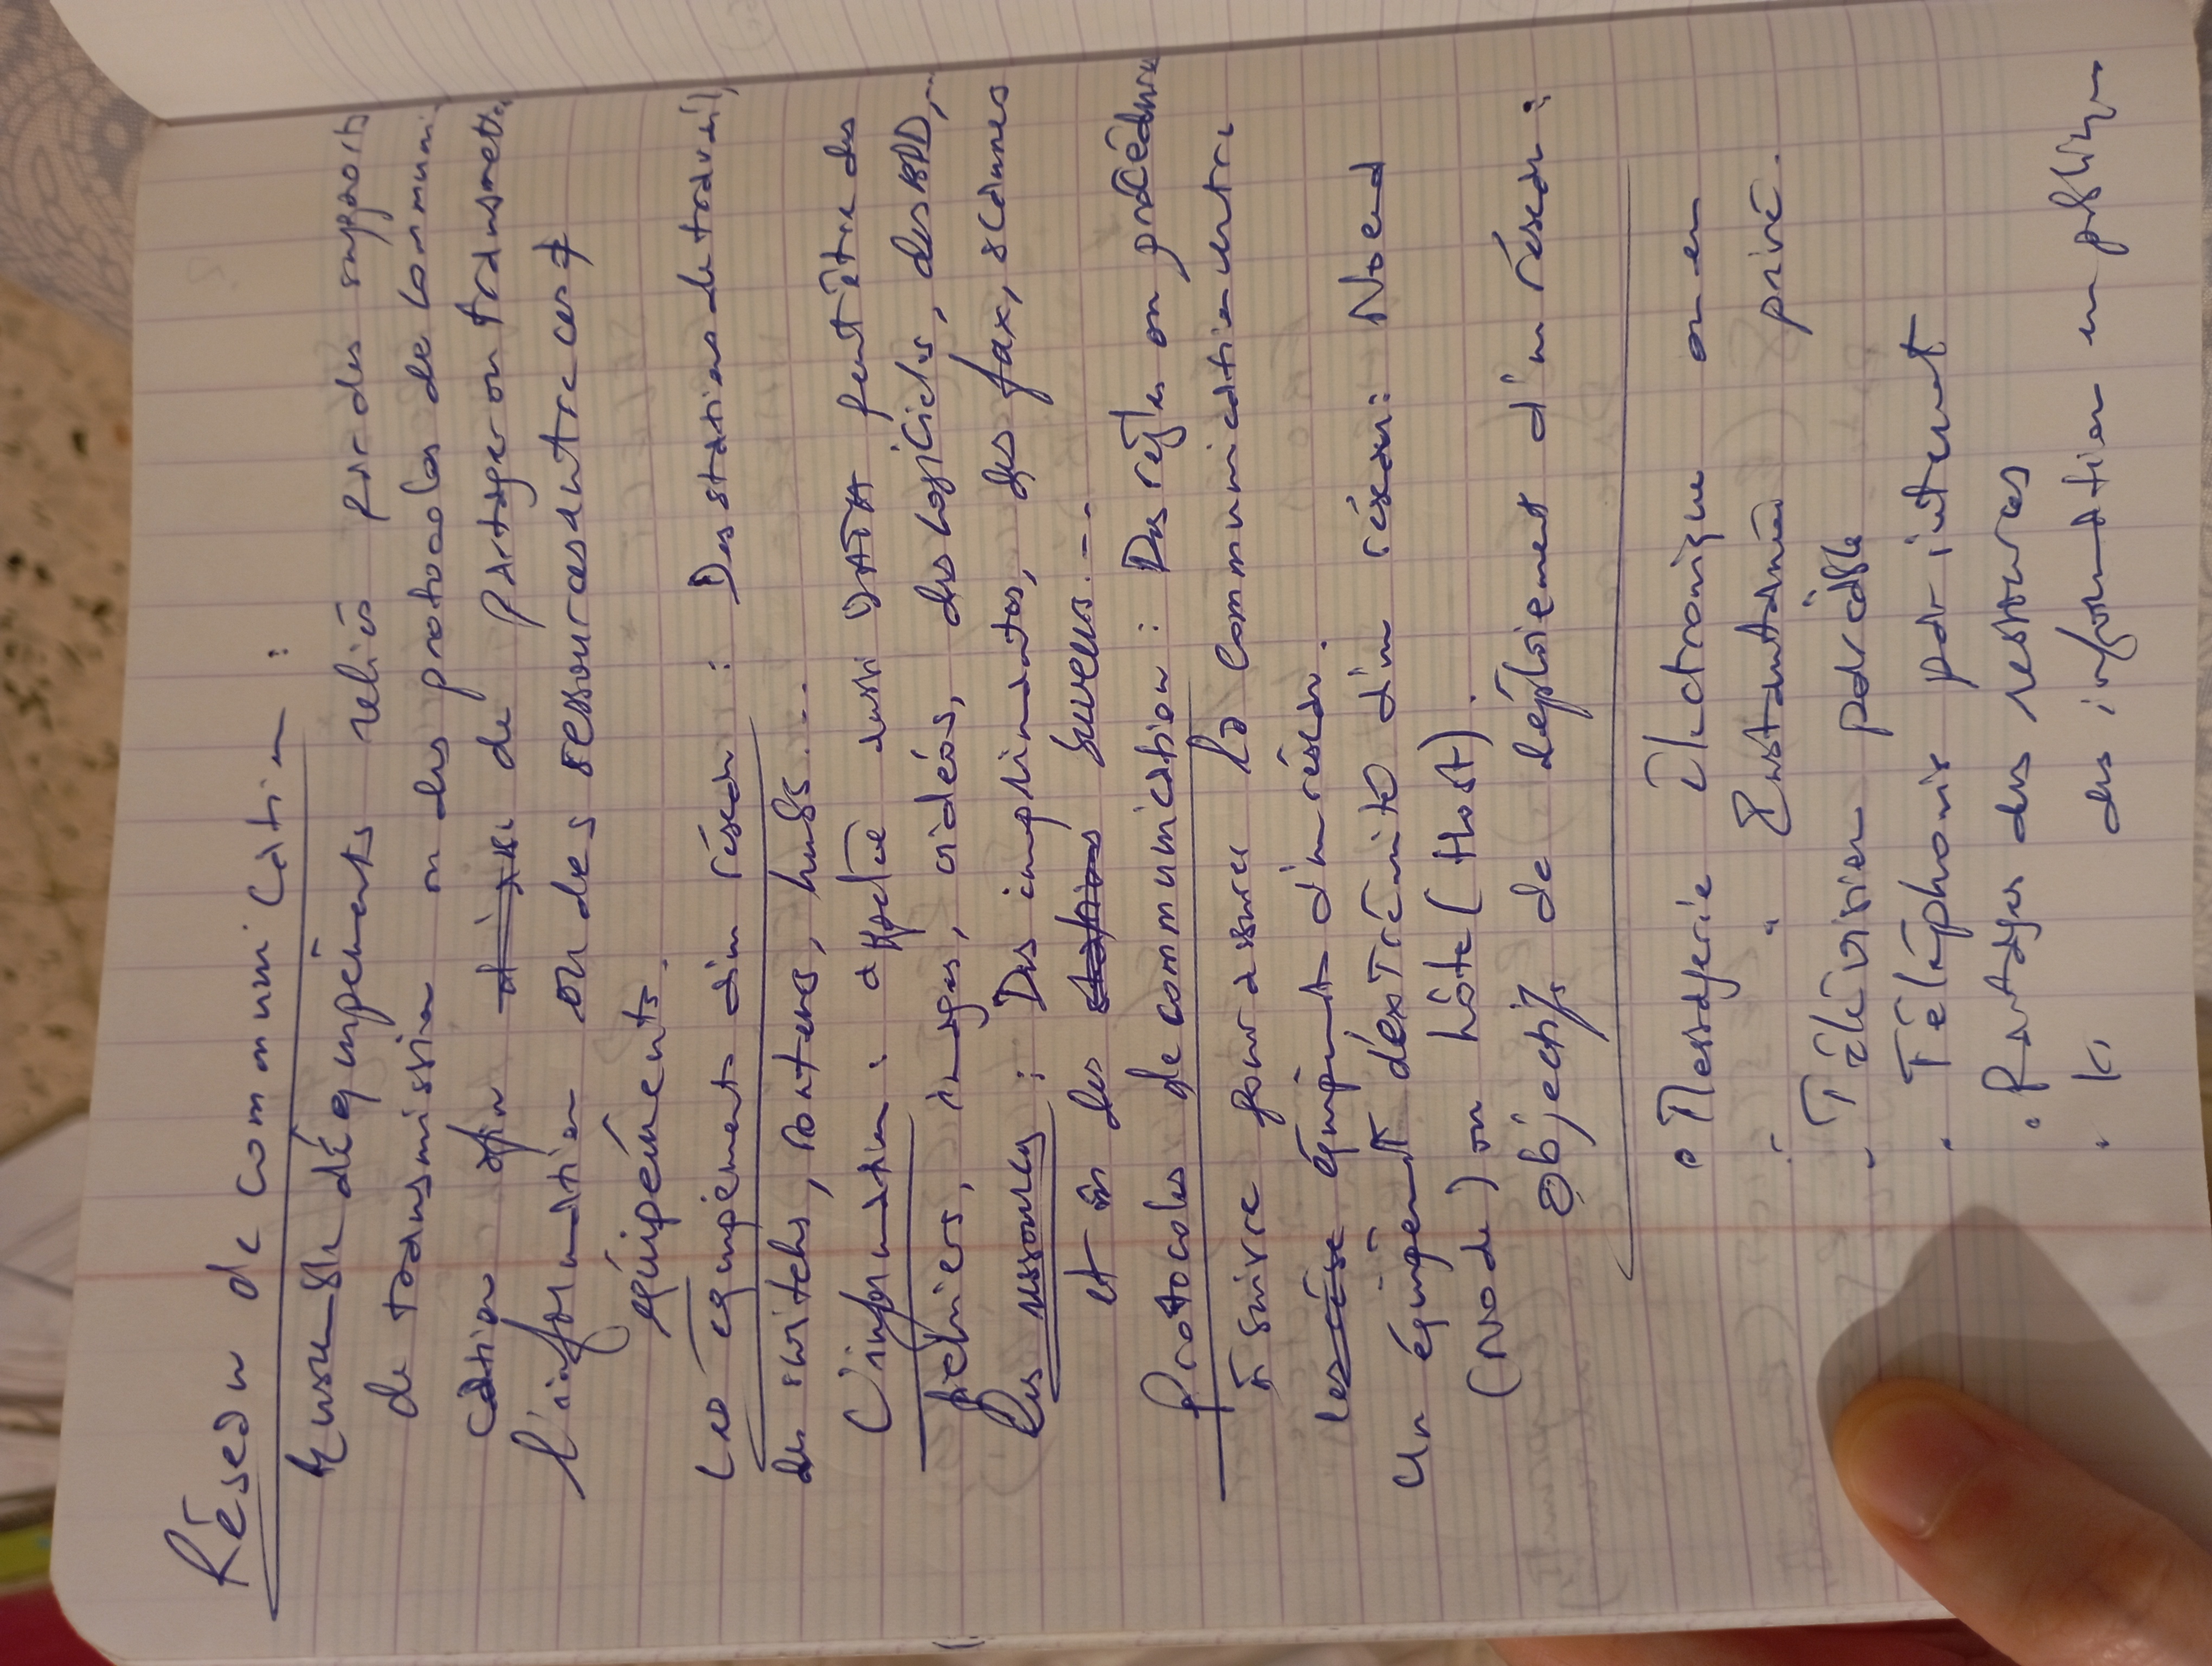 Réseau de communication :
Ensemble d'équipements reliés par des supports
de transmission ou des protocoles de communi
cation afin de partager ou transmettre
l'information ou des ressources entre ces
équipements.
Les équipements d'un réseau : Des stations de travail,
des switchs, routeurs, hubs...
L'information : appelée aussi DATA peut être des
fichiers, images, vidéos, des logiciels, des BDD, ...
Les ressources : Des imprimantes, des fax, scanners
et des serveurs...
Protocoles de communication : Des règles ou procédures
à suivre pour assurer la communication entre
les équipements d'un réseau.
Un équipement d'extrémité d'un réseau : Noeud
(Node) ou hôte (Host).
Objectifs de déploiement d'un réseau :
• Messagerie électronique ou en
" " Instantanée privé.
- Télévision par câble
. Téléphonie par internet
. Partages des ressources
. " des information en publique